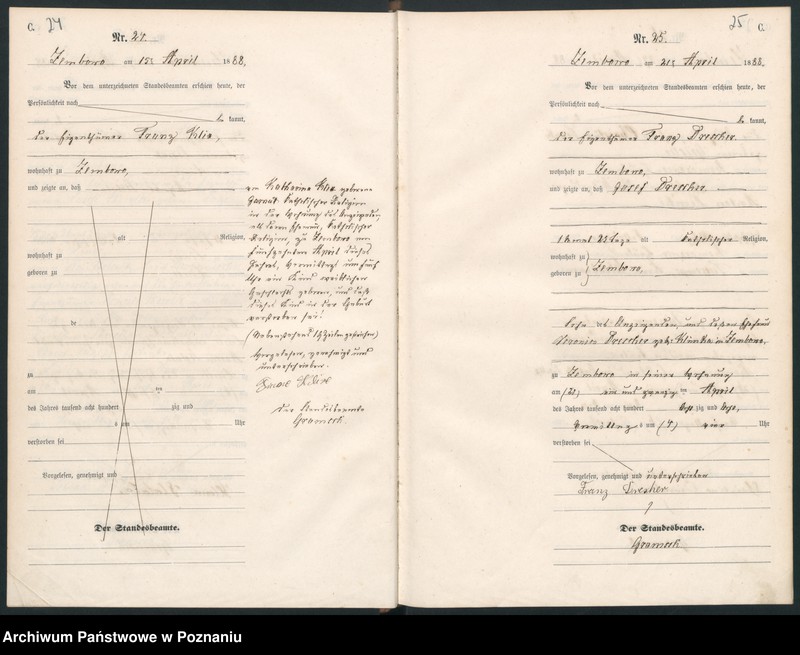 C. 24
Nr. 24.
Zembowo am 15ts April 1888.
Vor dem unterzeichneten Standesbeamten erschien heute, der
Persönlichkeit nach
be kannt,
der Eigenthümer Franz Klix,
wohnhaft zu Zembowo,
und zeigte an, daß
alt Religion,
wohnhaft zu
geboren zu
de
zu
am ten
des Jahres tausend acht hundert zig und
s um Uhr
verstorben sei
Vorgelesen, genehmigt und
Der Standesbeamte.
Katharina Klix geborene
katholischer Religion
in der Wohnung des Anzeigenden,
katholischer
Religion, zu Zembowo am
fünfzehnten April dieses
Jahres, Vormittags um fünf
Uhr ein Kind weiblichen
Geschlechts geboren, und daß
dieses Kind in der Geburt
verstorben sei.
(Nebenstehend Zeilen gestrichen)
Vorgelesen, genehmigt und
unterschrieben.
Der Standesbeamte
Grameck.
25 C.
Nr. 25.
Zembowo am 21ts April 1888.
Vor dem unterzeichneten Standesbeamten erschien heute, der
Persönlichkeit nach
be kannt,
der Eigenthümer Franz Drescher
wohnhaft zu Zembowo,
und zeigte an, daß Josef Drescher
1 Monat 23 Tage alt katholischer Religion,
wohnhaft zu
geboren zu Zembowo,
Sohn des Anzeigenden, und dessen Ehefrau
Veronica Drescher geb. Klimka in Zembowo,
zu Zembowo in seiner Wohnung
am (21) ein und zwanzig ten April
des Jahres tausend acht hundert acht zig und acht,
Vormittag s um (4) vier Uhr
verstorben sei
Vorgelesen, genehmigt und unterschrieben
Franz Drescher
Der Standesbeamte.
Grameck
Archiwum Państwowe w Poznaniu